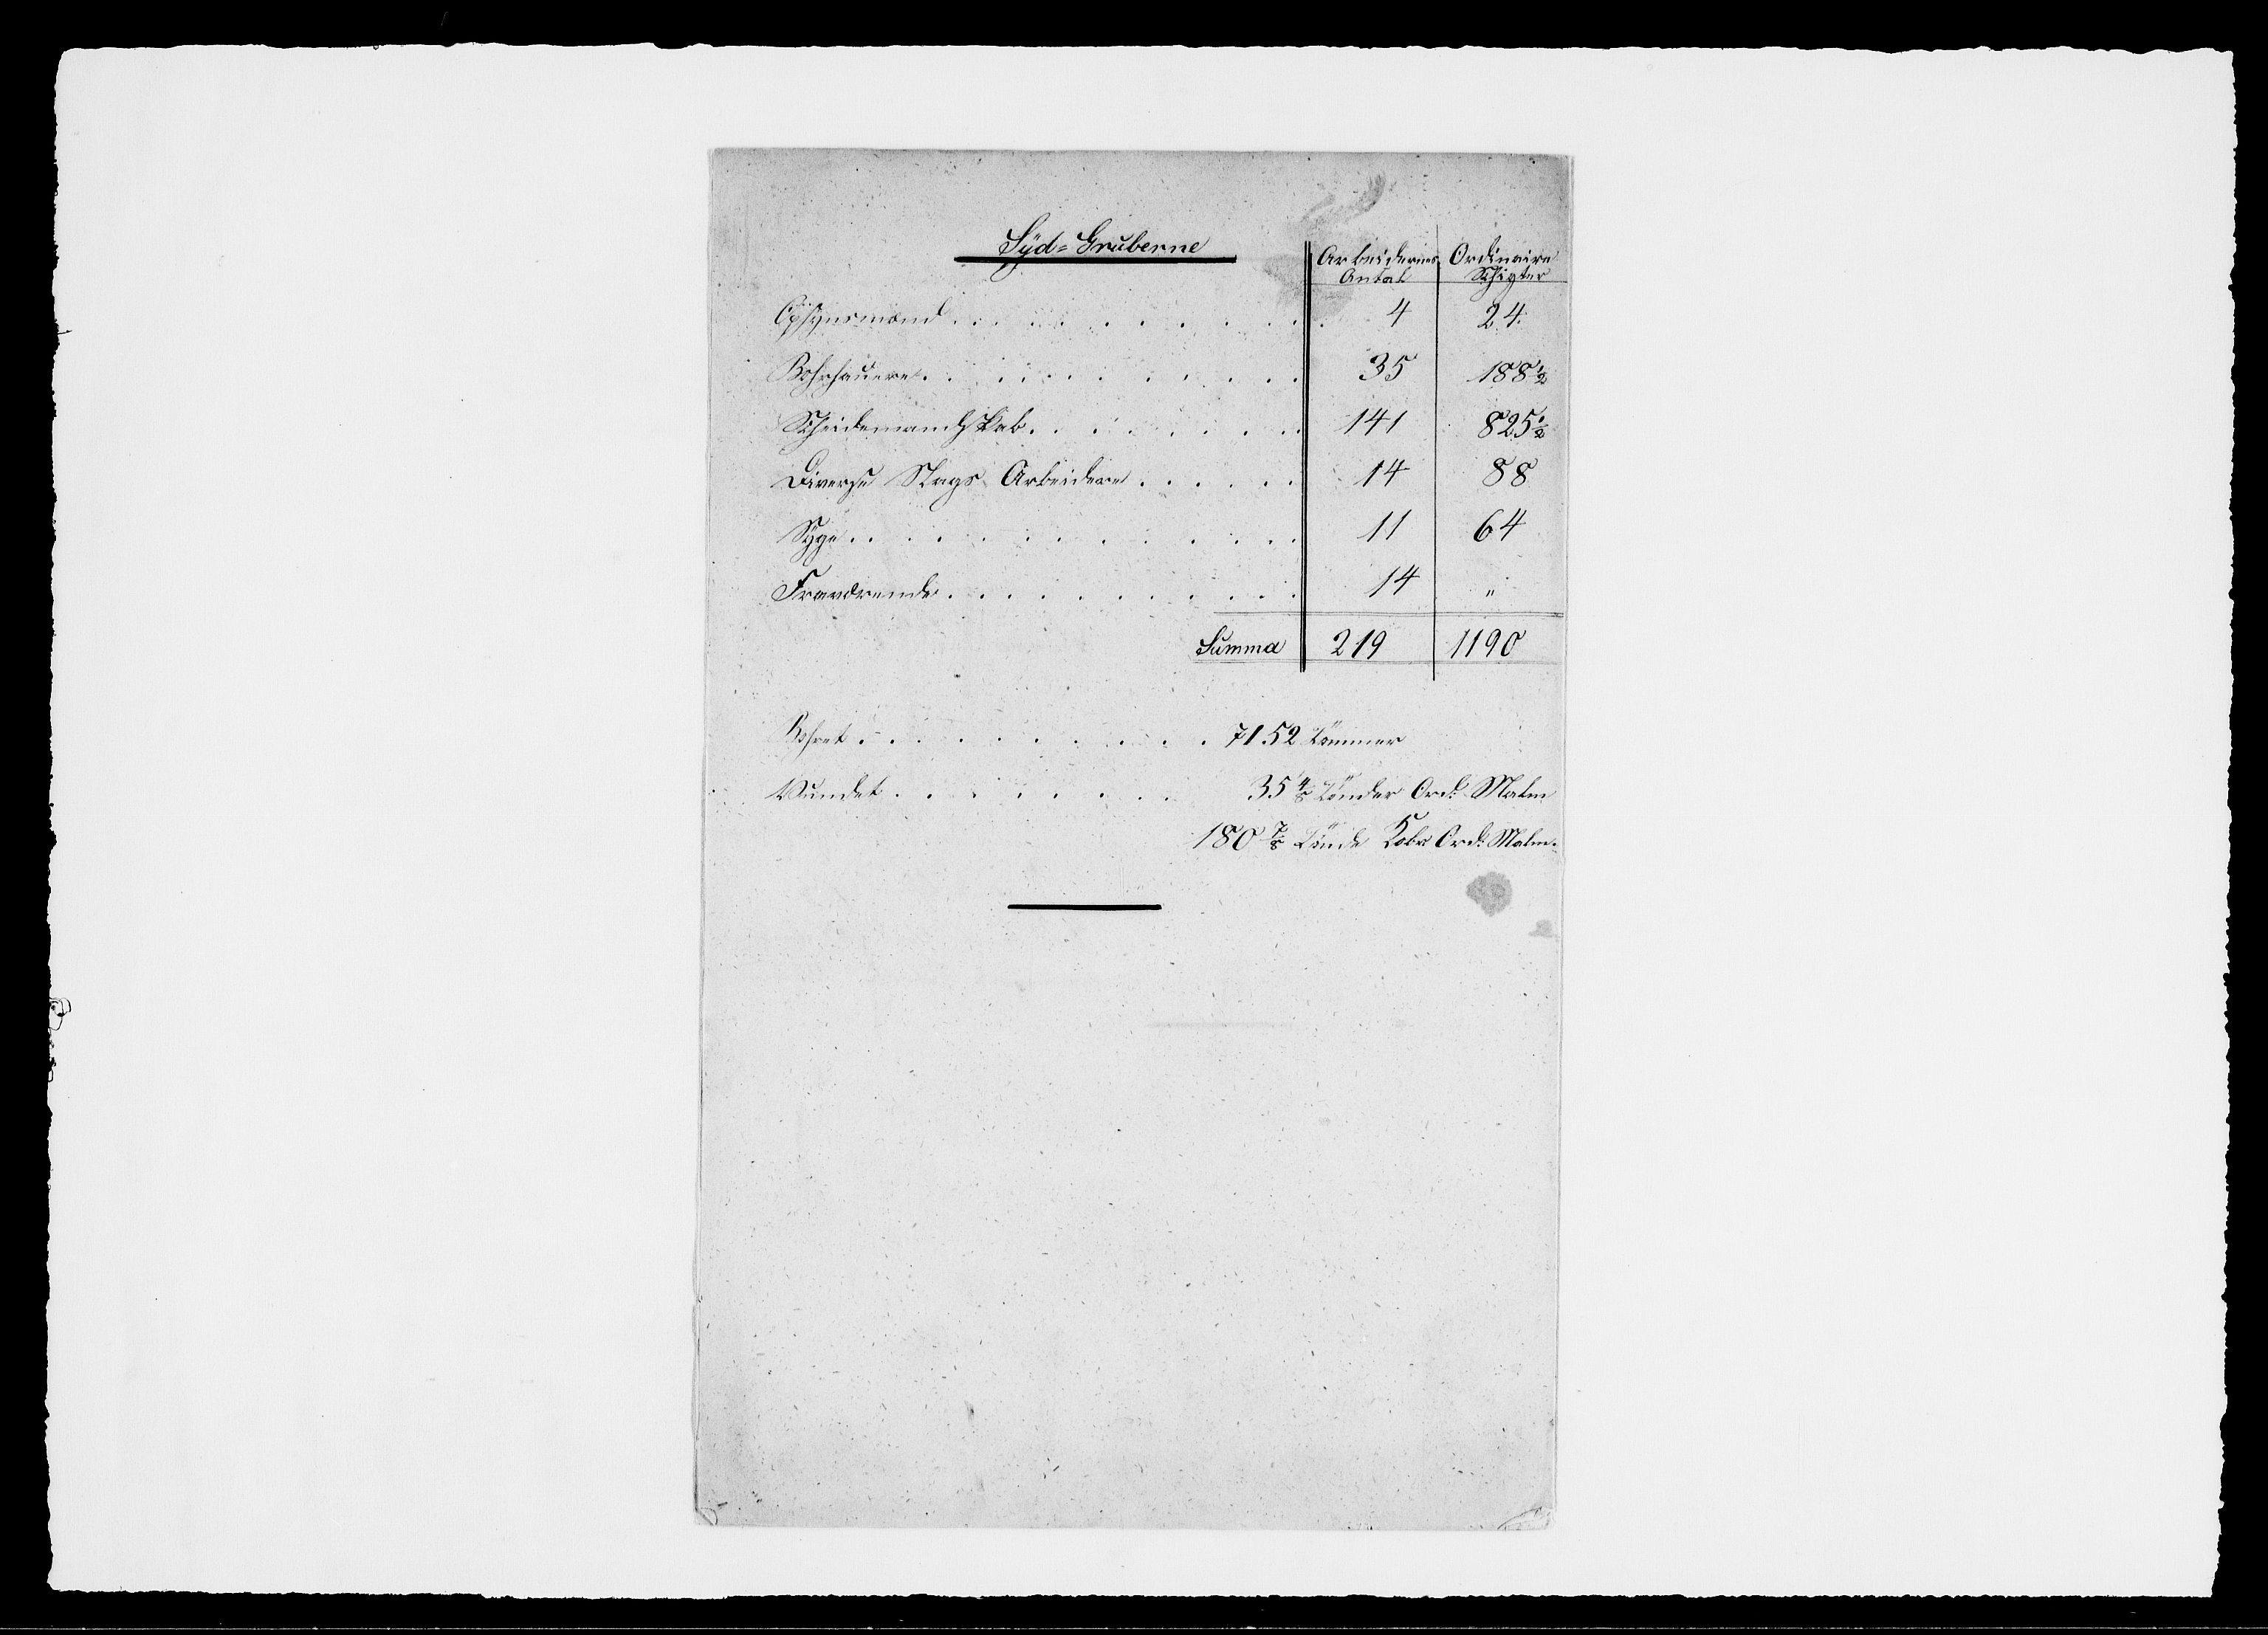 Syd-Gruberne
Arbeidernes Antal Ordinaire Schigter
Opsynsmænd . . . . . . . . . . 4 24
Bohrhauere . . . . . . . . . . 35 188 1/2
Scheidemandskab . . . . . . . . 141 825 1/2
Diverse Slags Arbeidere . . . . . . 14 88
Syge . . . . . . . . . . . 11 64
Fraværende . . . . . . . . . . 14 "
Summa 219 1190
Bohret . . . . . . . . . 7152 Tommer
Vundet . . . . . . . . 35 4/8 Tönder Ord: Malm
180 7/8 Tönde Kobr Ord: Malm.